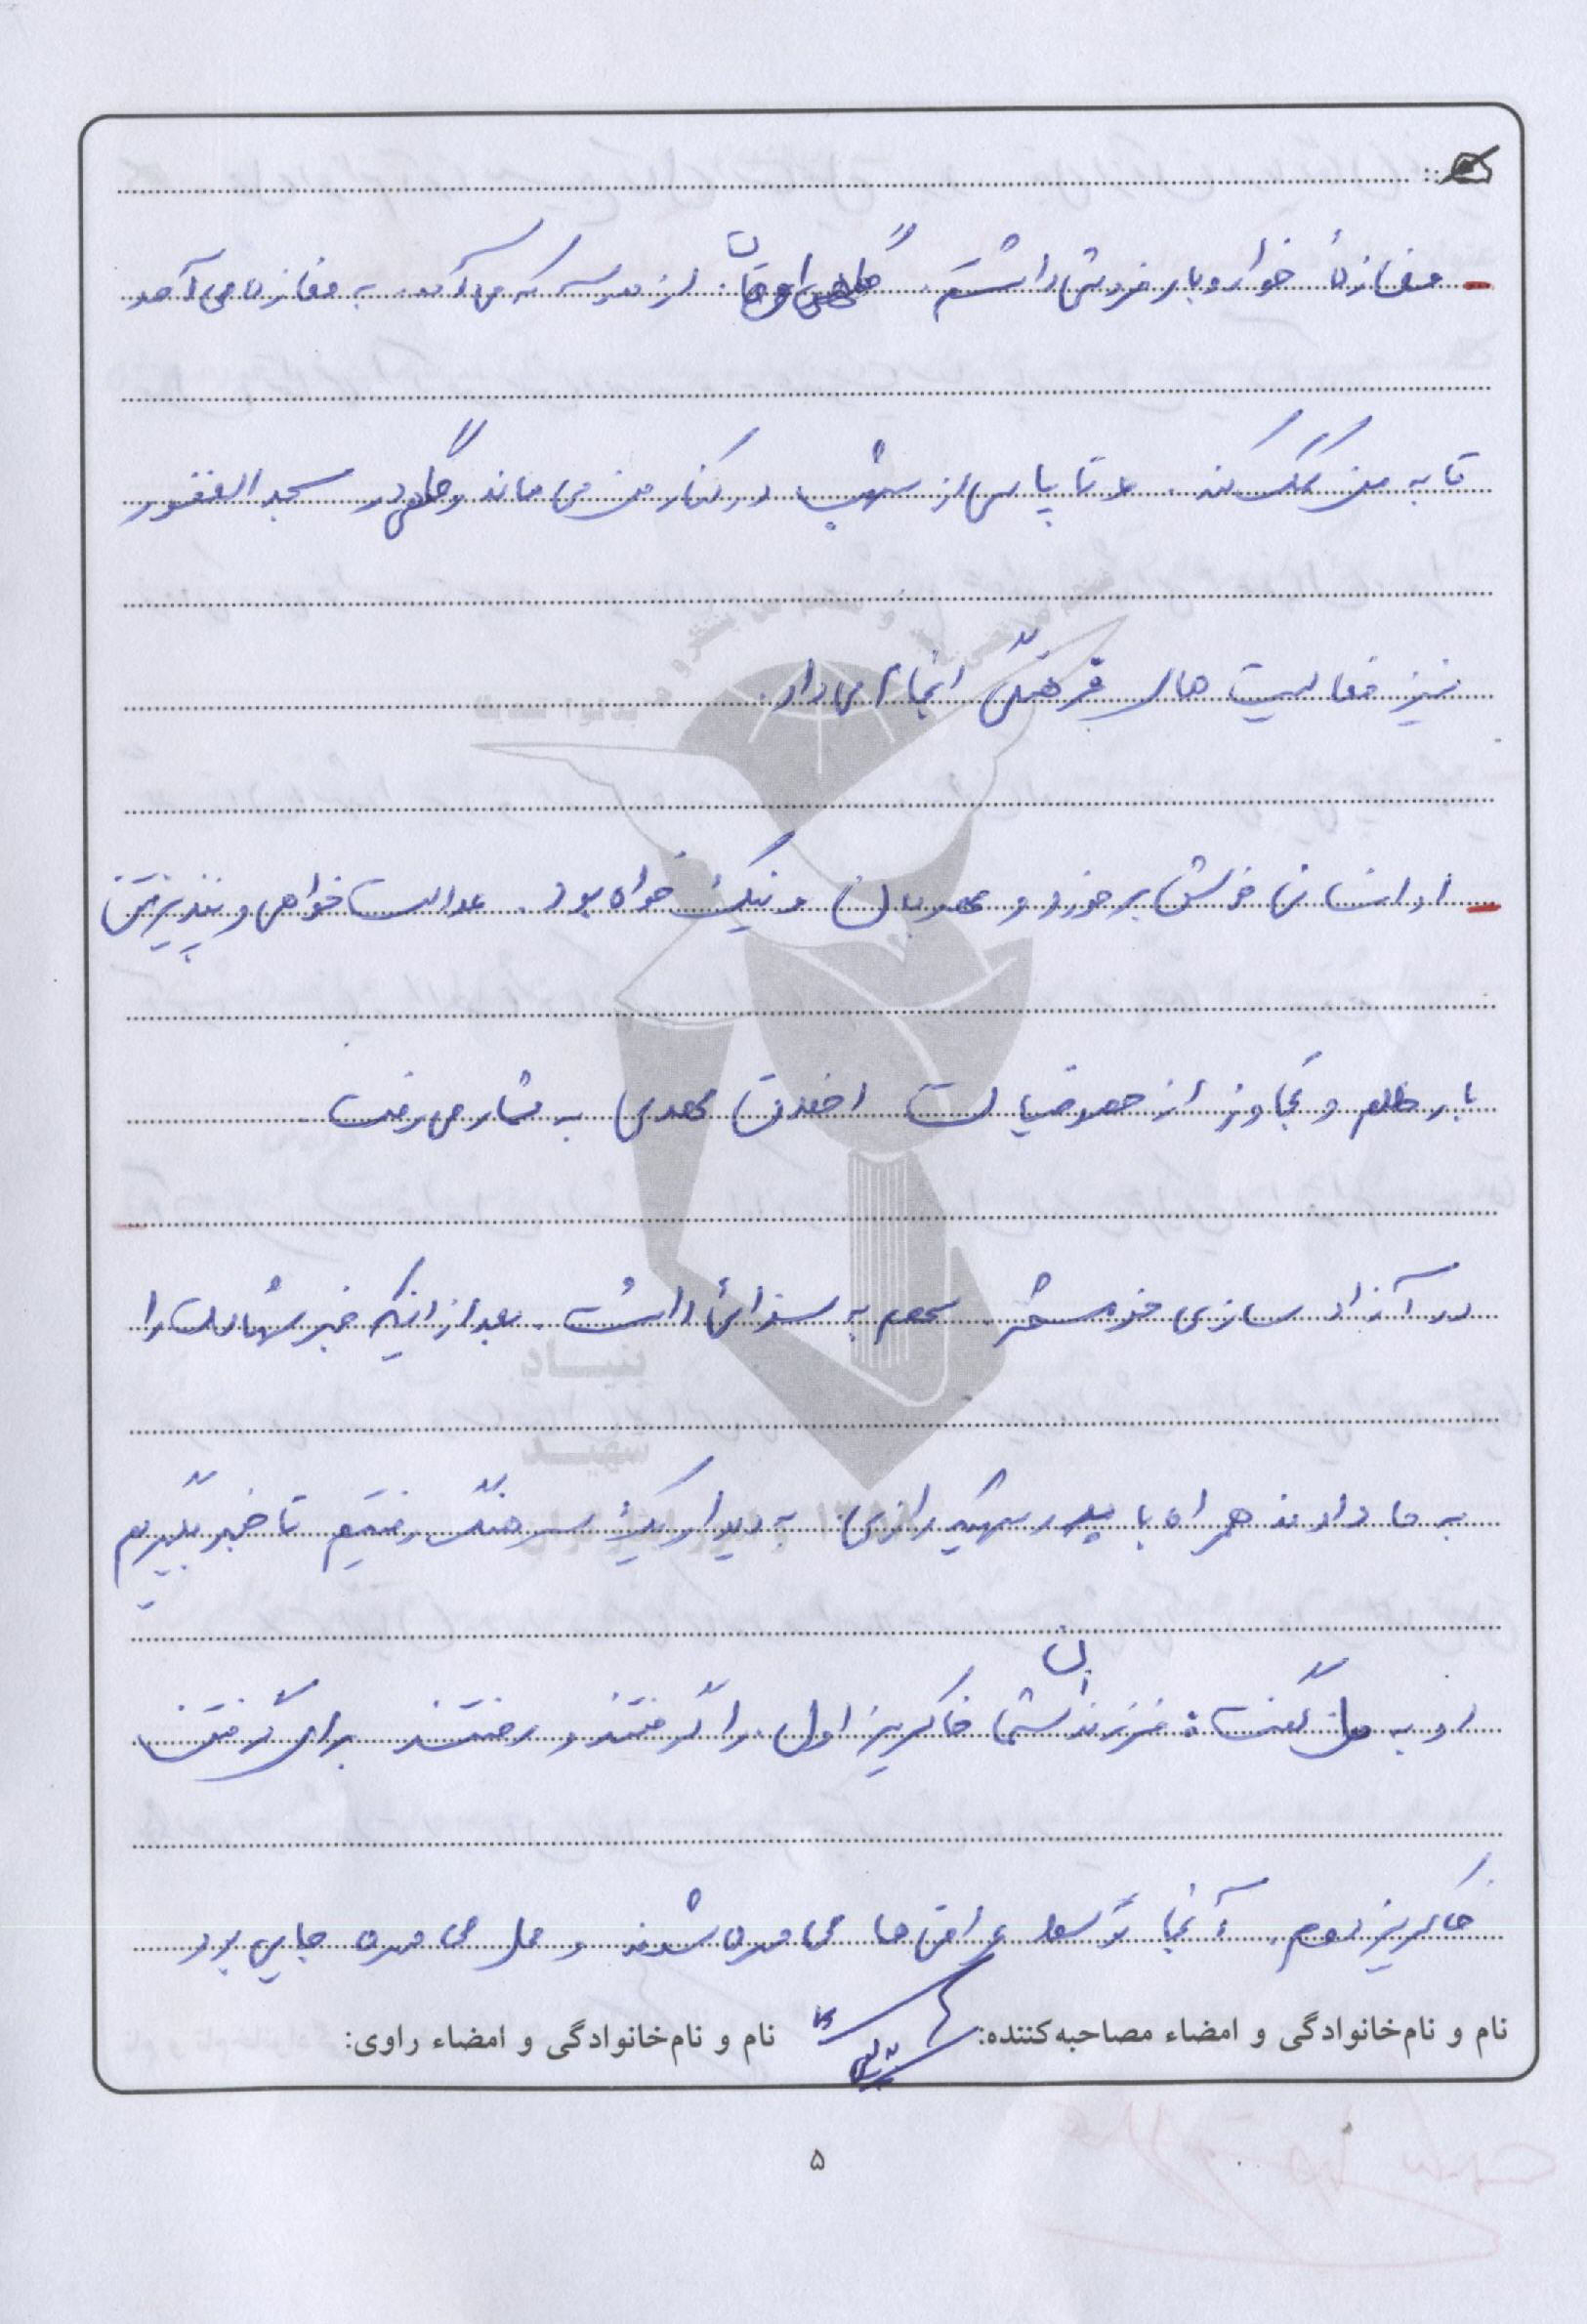 - مغازهٔ خواروبار فروشی داشتم. گاهی اوقات از مدرسه که می‌آمد. به مغازه می آمد
تا به من کمک کند. و تا پاسی از شب در کنار من می ماند و گاهی در مسجد الغفور
نیز فعالیت های فرهنگی انجام می داد.
- او انسانی خوش برخورد و مهربان و نیک خواه بود. عدالت خواهی و نپذیرفتن
بار ظلم و تجاوز از خصوصیات اخلاقی مهدی به شمار می رفت
در آزاد سازی خرمشهر سهم به سزائی داشت. بعد از اینکه خبر شهادت را
به ما دادند همراه با پدر شهید رازی به دیدار یک سرهنگ رفتیم تا خبر بگیریم
او به من گفت: فرزندان شما خاکریز اول را گرفتند و رفتند برای گرفتن
خاکریز دوم. آنجا توسط عراقی ها محاصره شدند و محل محاصره جایی بود
نام و نام‌خانوادگی و امضاء مصاحبه‌کننده: نام و نام‌خانوادگی و امضاء راوی:
۵
بنیاد
شهید